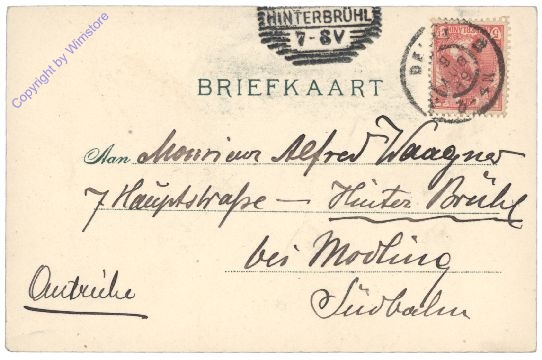 Copyright by Wimstore
HINTERBRÜHL
7-8V
BRIEFKAART
Aan Monsieur Alfred Waagner
7 Hauptstraße — Hinter Brühl
bei Modling
Südbahn
Autriche